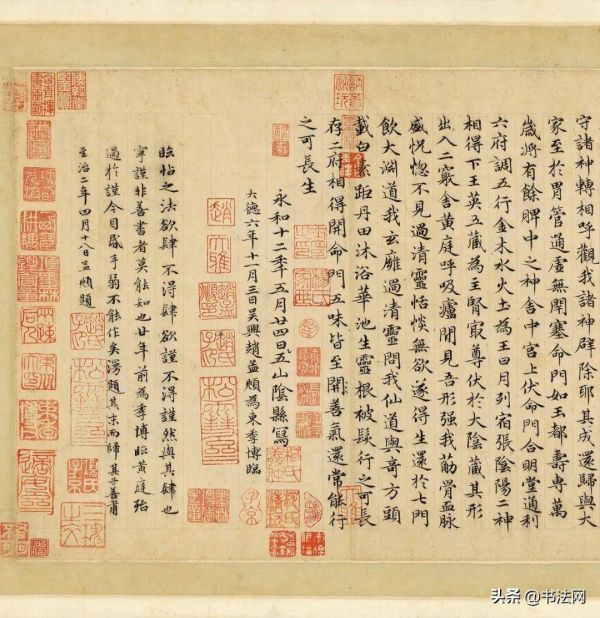 守諸神轉相呼觀我諸神辟除耶其成還歸與大
家至於胃管通虛無閉塞命門如玉都壽專萬
歲將有餘脾中之神舍中宮上伏命門合明堂通利
六府調五行金木水火土為王日月列宿張陰陽二神
相得下玉英五藏為主腎寂尊伏於大陰藏其形
出入二竅舍黃庭呼吸廬間見吾形强我筋骨血脈
盛怳惚不見過清靈恬惔無欲遂得生還於七門
飲大淵道我玄廱過清靈問我仙道與奇方頭
載白素距丹田沐浴華池生靈根被髮行之可長
存二府相得開命門五味皆至開善氣還常能行
之可長生
永和十二年五月廿四日五山陰縣寫
大德六年十一月三日吳興趙孟頫為束季博臨
臨帖之法欲肆不得肆欲謹不得謹然與其肆也
寧謹非善書者莫能知也廿年前為季博臨黃庭殆
過於謹今目昏手弱不能作矣漫題其末而歸其子善甫
至治二年四月十八日孟頫題
头条 @书法网